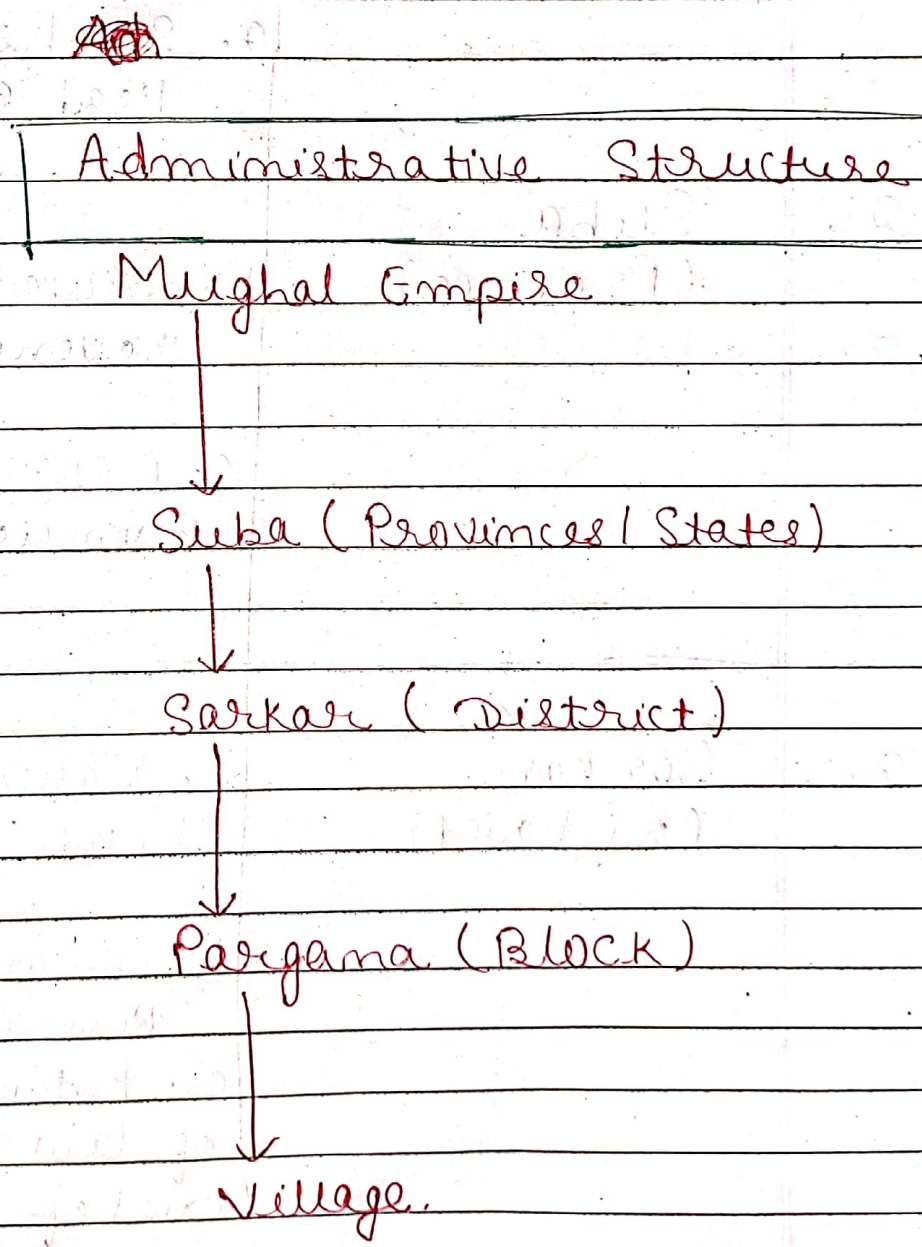 Administrative Structure
Mughal Empire
Suba (Provinces / States)
Sarkar (District)
Pargana (Block)
Village.